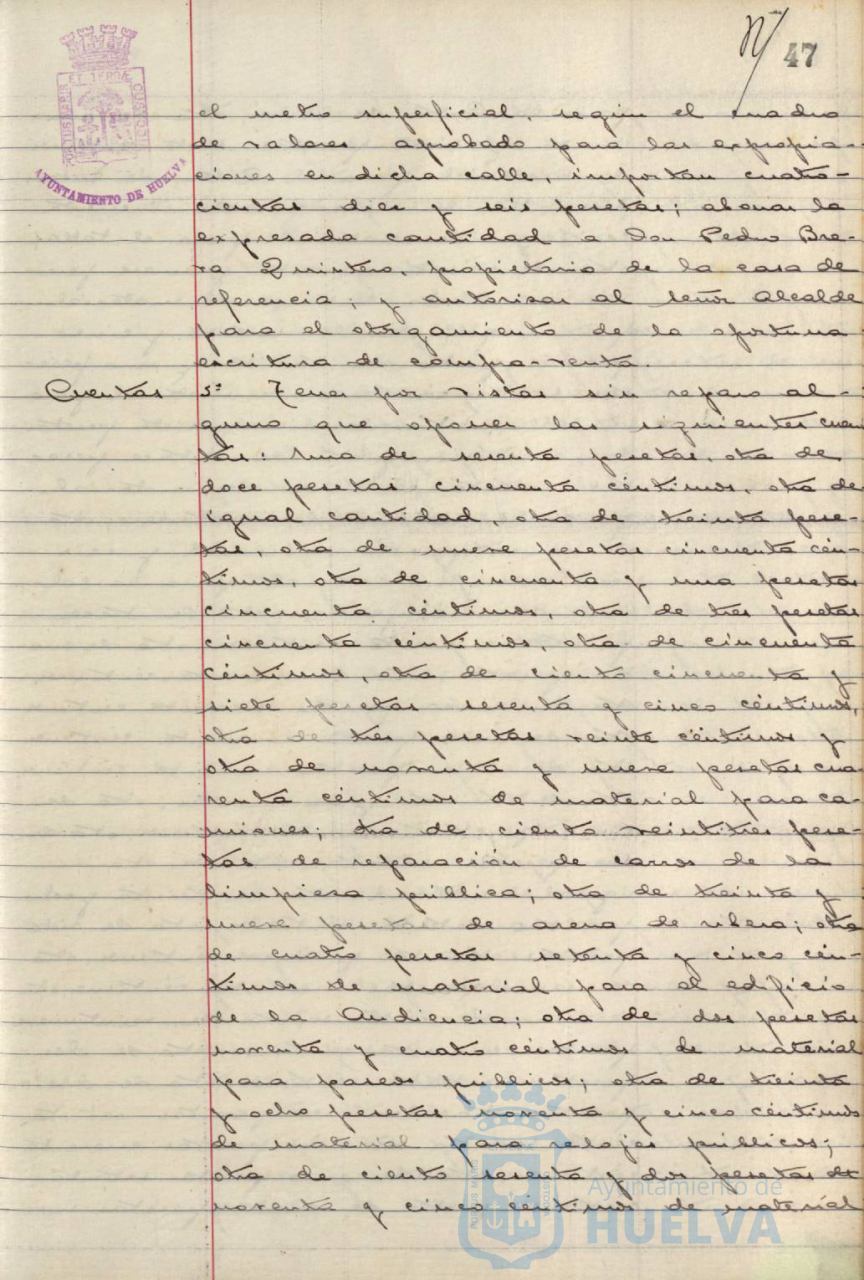 47
PORTUS MARIS ET TERRAE CUSTODIA
AYUNTAMIENTO DE HUELVA
el metro superficial, según el cuadro
de valores aprobado para las expropia-
ciones en dicha calle, importan cuatro-
cientas diez y seis pesetas; abonar la
expresada cantidad a Don Pedro Bre-
va Quintero, propietario de la casa de
referencia; y autorizar al señor Alcalde
para el otorgamiento de la oportuna
escritura de compra-venta.
Cuentas 5º Tener por vistas sin reparo al-
guno que oponer las siguientes cuen
tas: Una de sesenta pesetas, otra de
doce pesetas cincuenta céntimos, otra de
igual cantidad, otra de treinta pese-
tas, otra de nueve pesetas cincuenta cén-
timos, otra de cincuenta y una pesetas
cincuenta céntimos, otra de tres pesetas
cincuenta céntimos, otra de cincuenta
céntimos, otra de ciento cincuenta y
siete pesetas sesenta y cinco céntimos,
otra de tres pesetas veinte céntimos y
otra de noventa y nueve pesetas cua
renta céntimos de material para ca-
miones; otra de ciento veintitres pese-
tas de reparación de carros de la
limpieza pública; otra de treinta y
nueve pesetas de arena de ribera; otra
de cuatro pesetas setenta y cinco cén-
timos de material para el edificio
de la Audiencia; otra de dos pesetas
noventa y cuatro céntimos de material
para paseos públicos; otra de treinta
y ocho pesetas noventa y cinco céntimos
de material para relojes públicos;
otra de ciento sesenta y dos pesetas
noventa y cinco céntimos de material
Ayuntamiento de
HUELVA